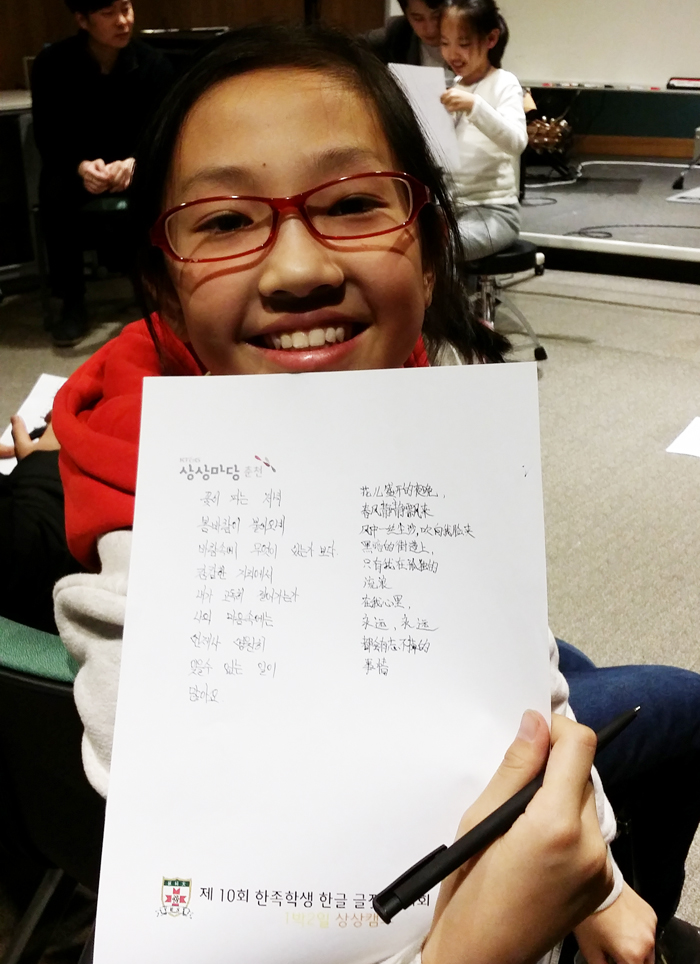 상상마당 춘천
꽃이 피는 저녁
봄바람이 불어오네
바람속에 무언이 있는가 보다.
컴컴한 거리에서
내가 고독히 걸어가는가
나의 마음속에는
언제나 영원히
잊을수 없는 일이
많아요
花儿盛开的夜晚，
春风静静飘来
风中一丝尘沙，吹向我脸来
黑暗的街道上，
只有我在孤独的
流浪
在我心里，
永远，永远
都会有忘不掉的
事情
제 10회 한족학생 한글 글 회
1박2일 상상캠